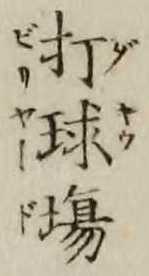 打球場
ダキウヤウ
ビリヤード